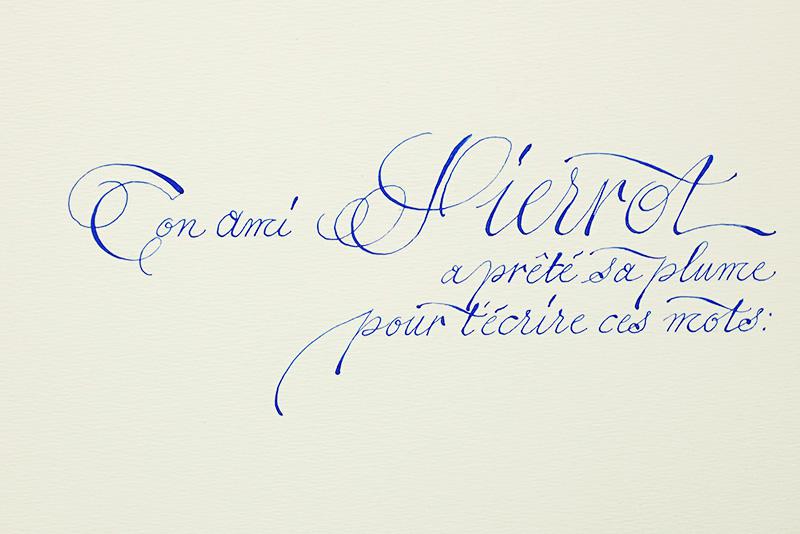 Ton ami Pierrot
a prêté sa plume
pour t'écrire ces mots: